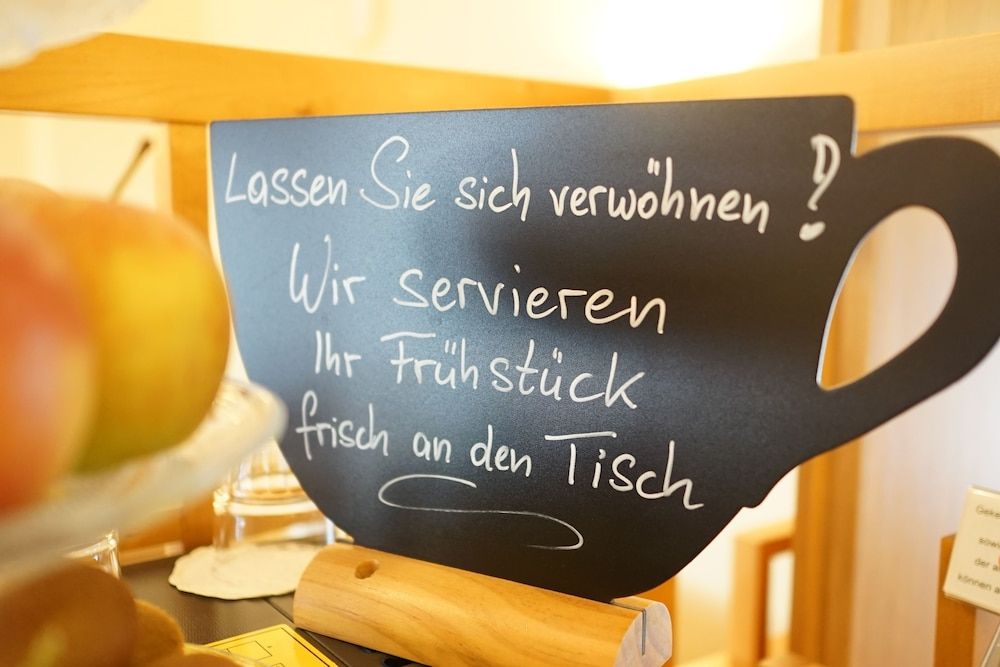 Lassen Sie sich verwöhnen!
Wir servieren
Ihr Frühstück
frisch an den Tisch
der
können